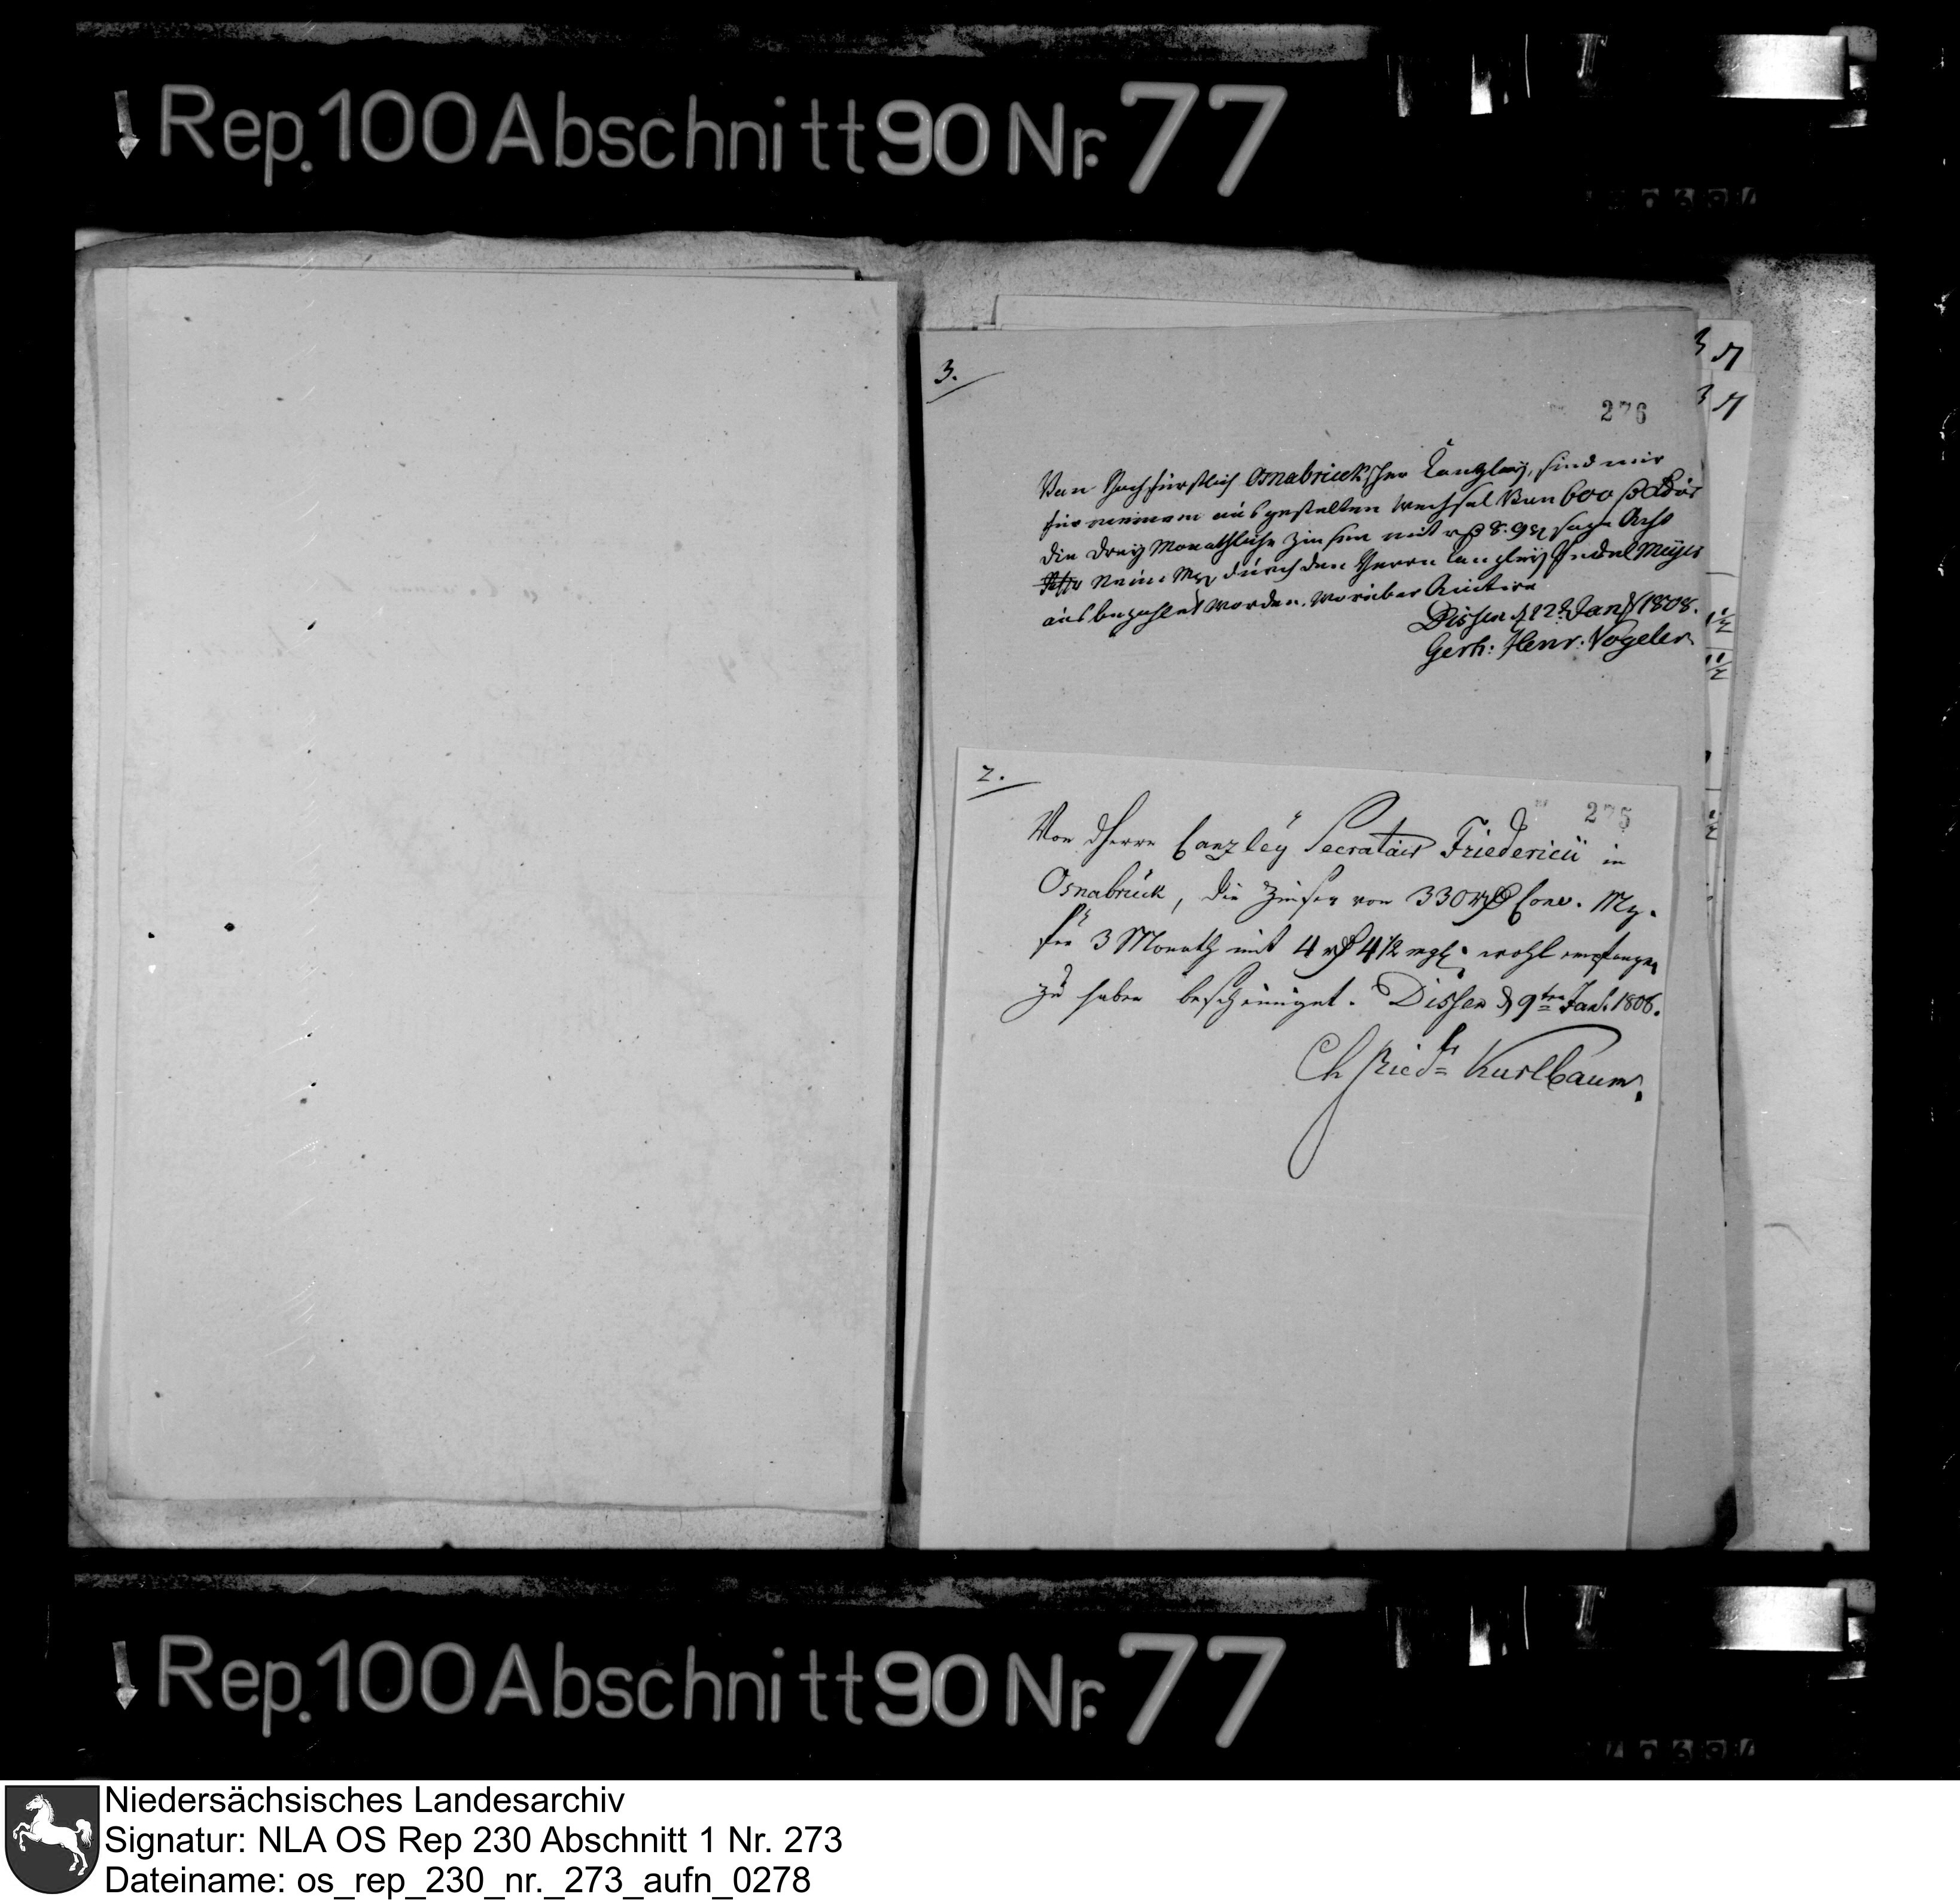 Rep. 100 Abschnitt 90 Nr. 77
3.
276
Von Hochfürstlich Osnabrückscher Canzley, sind mir
für meinem ausgestelten Wechsel von 600
die drey Monathliche Zinsen mit rthlr 8. 9 sage Acht
Neun Mgr durch den Herrn Canzley Pedel Meyer
ausbezahlet worden. Worüber Quitire
Dissen d 12t Jan 1808.
Gerh: Henr: Vogeler
2.
275
Von dHerrn Canzley Secretair Friederici in
Osnabrück, die Zinsen von 330 rthlr Conv. Mz.
für 3 Monath mit 4 rthlr 4 1/2 mgl. wohl empfangen
zu haben bescheiniget. Dissen d 9ten Jan. 1808.
Ch Kurlbaum.
Rep. 100 Abschnitt 90 Nr. 77
Niedersächsisches Landesarchiv
Signatur: NLA OS Rep 230 Abschnitt 1 Nr. 273
Dateiname: os_rep_230_nr._273_aufn_0278